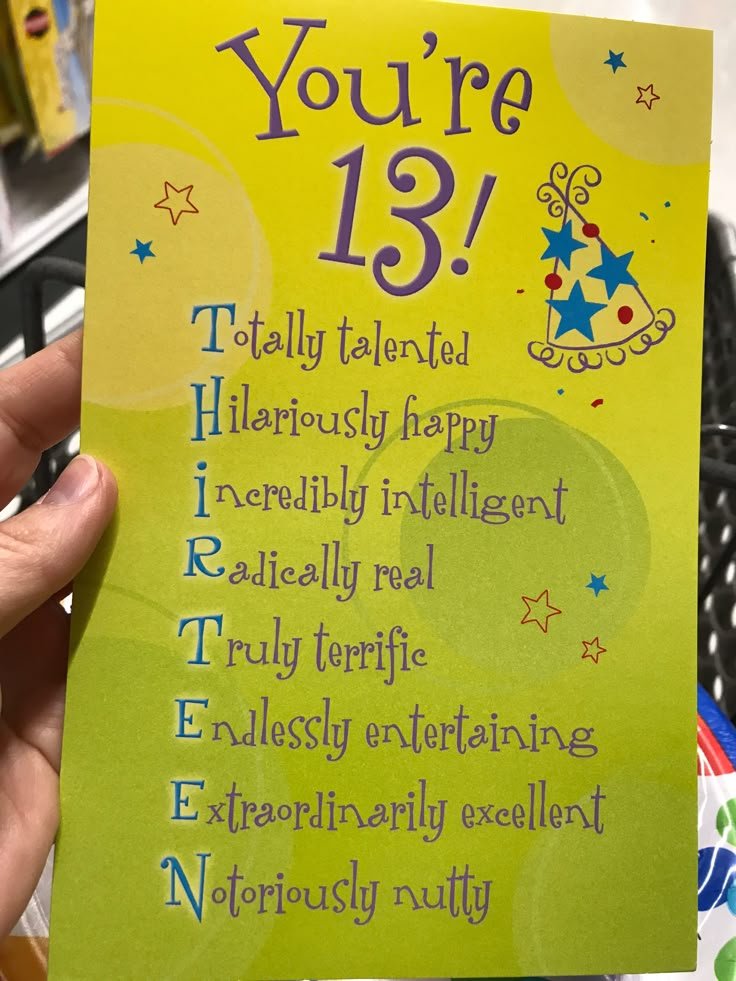 You're
13!
Totally talented
Hilariously happy
incredibly intelligent
Radically real
Truly terrific
Endlessly entertaining
Extraordinarily excellent
Notoriously nutty